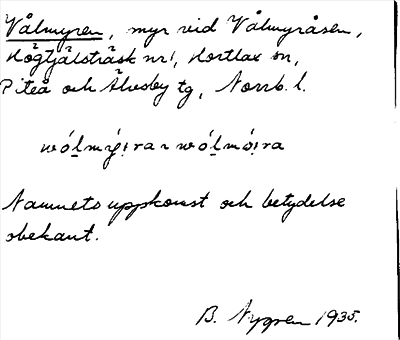 Vålmyren, myr vid Vålmyråsen,
Högtjälsträsk nr 1, Hortlax sn,
Piteå och Älvsby tg, Norrb. l.
wó̱lmýi̯ra ~ wó̱lmói̯ra
Namnets uppkomst och betydelse
obekant.
B. Nygren 1935.